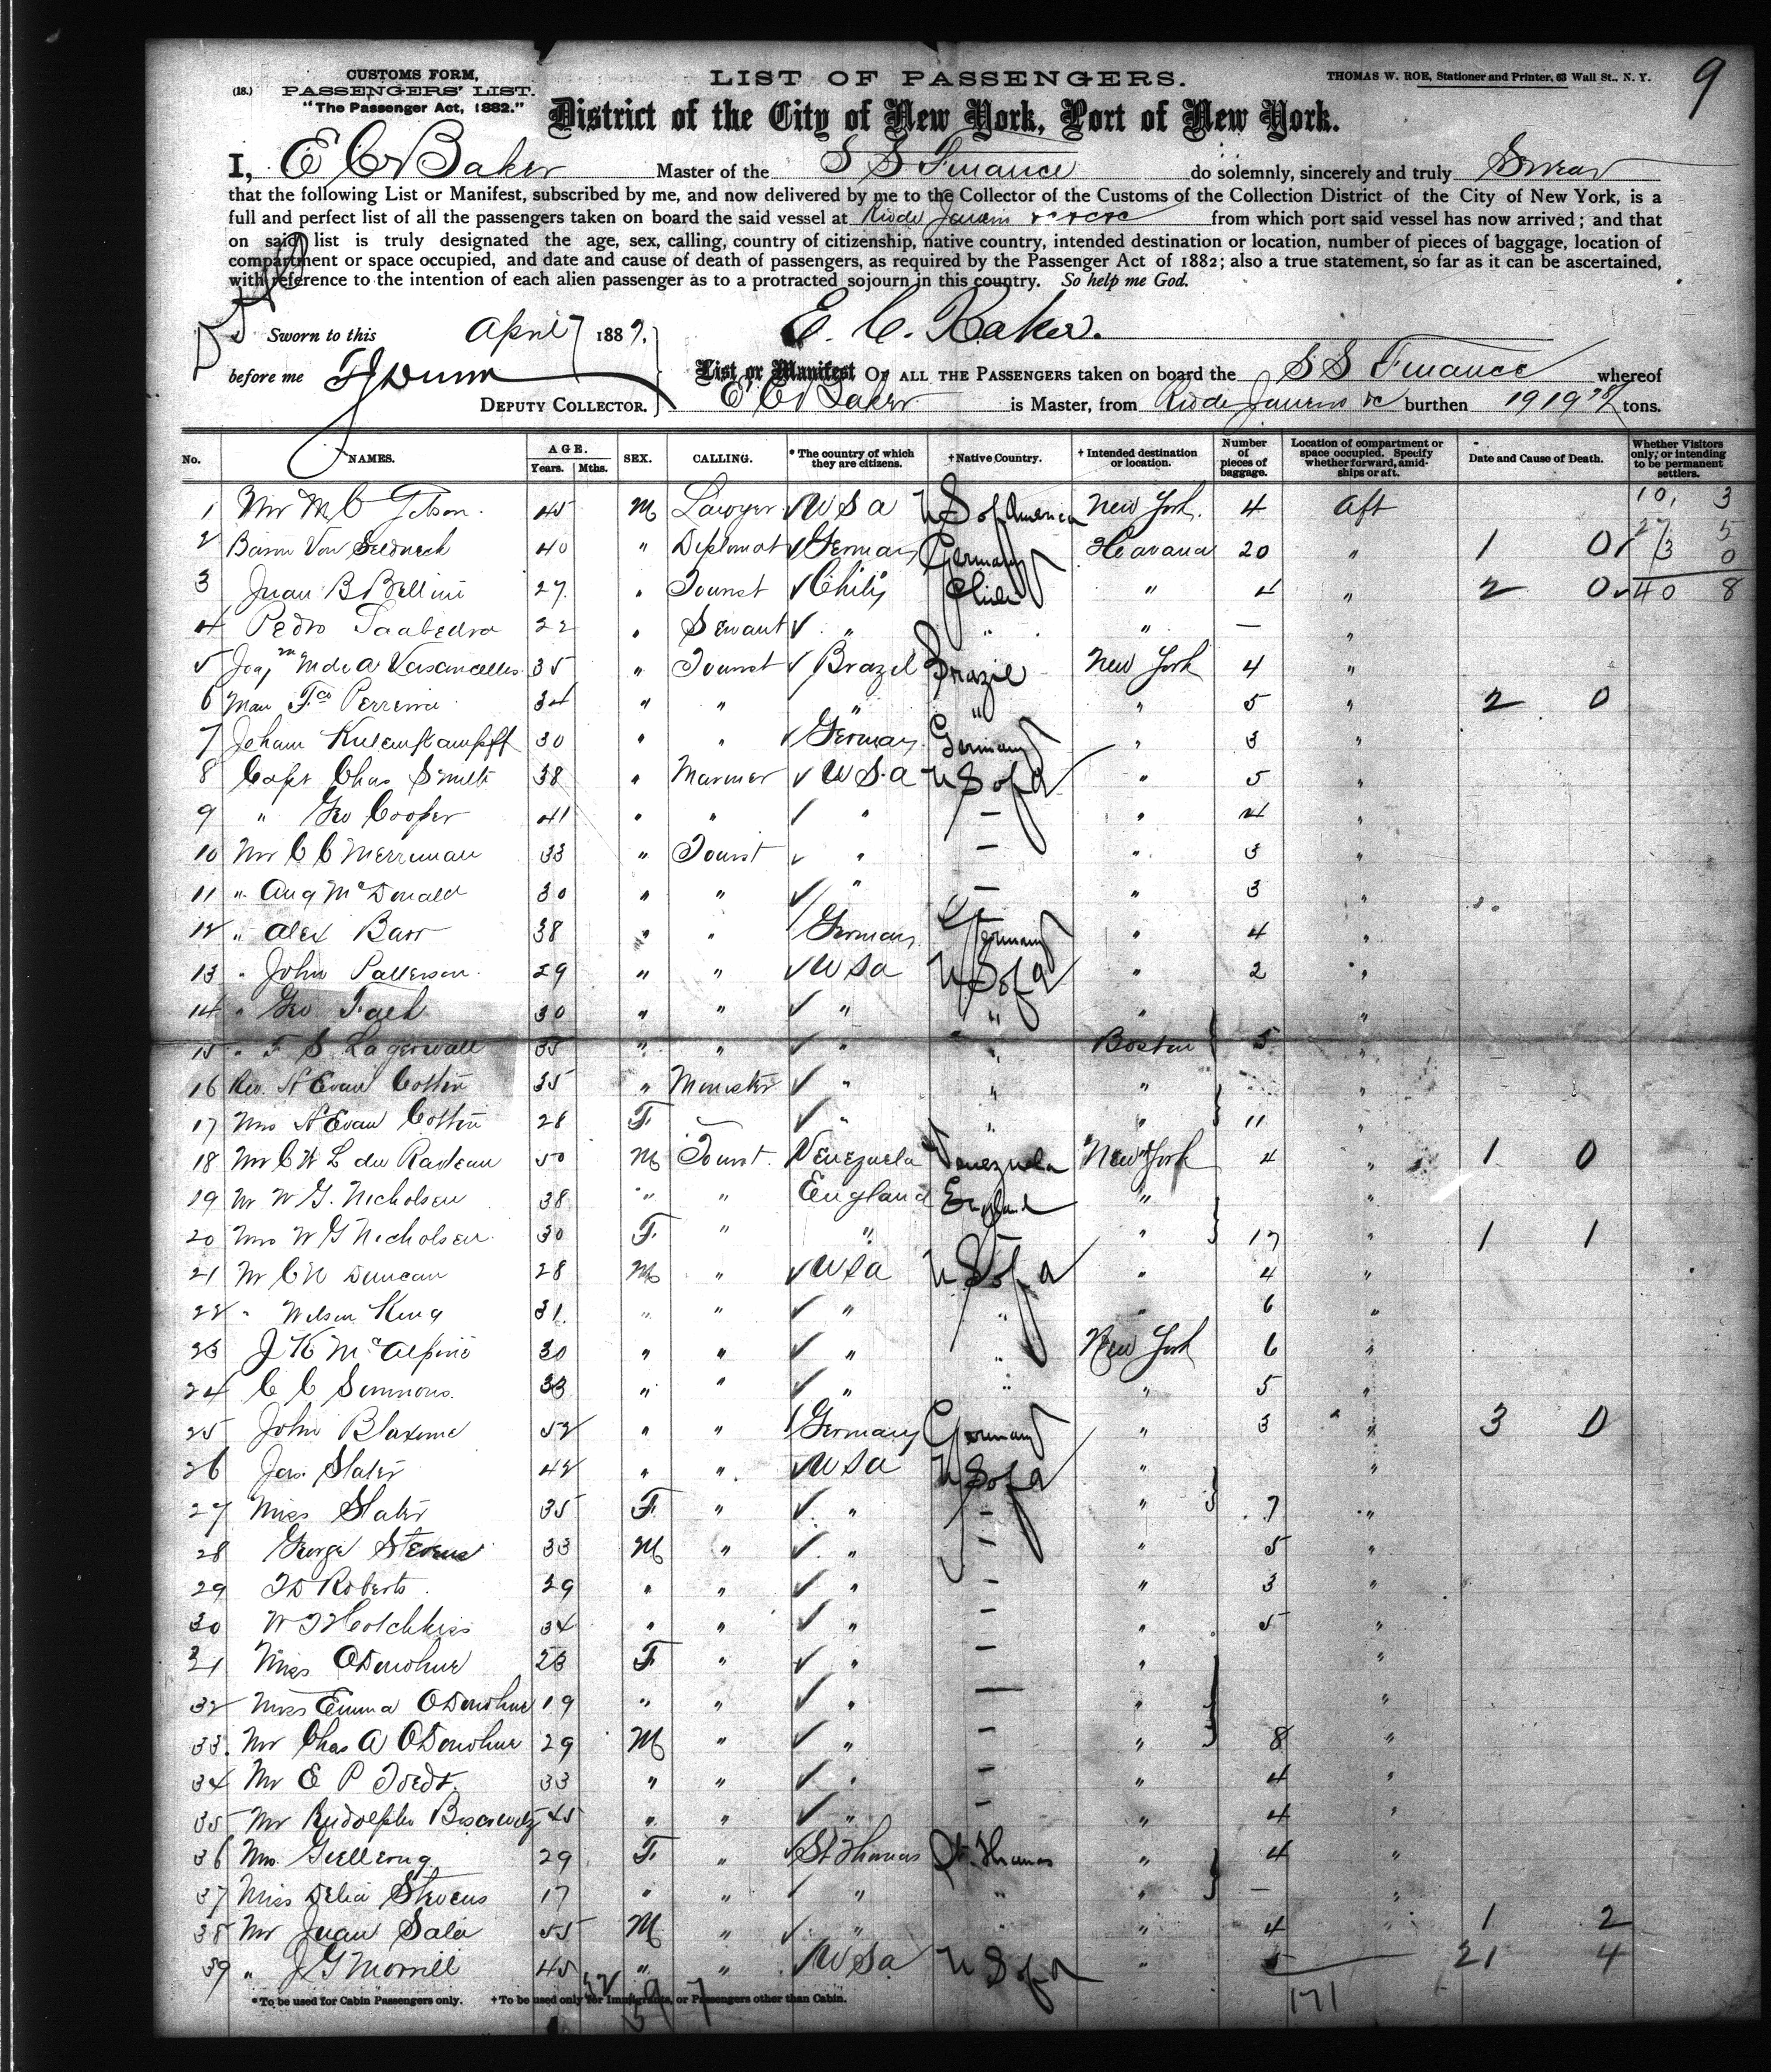 CUSTOMS FORM,
(18.) PASSENGERS' LIST.
"The Passenger Act, 1882."
LIST OF PASSENGERS.
THOMAS W. ROE, Stationer and Printer, 63 Wall St., N. Y.
9
District of the City of New York, Port of New York.
I, E C Baker Master of the S S Finance do solemnly, sincerely and truly Swear
that the following List or Manifest, subscribed by me, and now delivered by me to the Collector of the Customs of the Collection District of the City of New York, is a
full and perfect list of all the passengers taken on board the said vessel at Rio de Janeiro from which port said vessel has now arrived; and that
on said list is truly designated the age, sex, calling, country of citizenship, native country, intended destination or location, number of pieces of baggage, location of
compartment or space occupied, and date and cause of death of passengers, as required by the Passenger Act of 1882; also a true statement, so far as it can be ascertained,
with reference to the intention of each alien passenger as to a protracted sojourn in this country. So help me God.
Sworn to this April 7 1889.
E. C. Baker.
before me
DEPUTY COLLECTOR.
List or Manifest OF ALL THE PASSENGERS taken on board the S S Finance whereof
E C Baker is Master, from Rio de Janeiro &c burthen 1919 tons.
No. NAMES. AGE. Years. Mths. SEX. CALLING. * The country of which they are citizens. † Native Country. † Intended destination or location. Number of pieces of baggage. Location of compartment or space occupied. Specify whether forward, amidships or aft. Date and Cause of Death. Whether Visitors only, or intending to be permanent settlers.
1 Mr M C 45 M Lawyer U S A U S of America New York. 4 Aft 10, 3
2 Baron Von 40 " Diplomat Germany Germany Havana 20 " 1 0 27 5
3 0
3 Juan B Bellini 27. " Tourist Chili Chili " 4 " 2 0 40 8
4 Pedro Saabedra 22 " Servant " " " — "
5 M de A Vasconcellos 35 " Tourist Brazil Brazil New York 4 "
6 Man Fco 34 " " " " " 5 " 2 0
7 Johann 30 " " Germany Germany " 3 "
8 Capt Chas 38 " Mariner U S A U S of A " 5 "
9 " Geo Cooper 41 " " " — " 4 "
10 Mr C C Merriman 33 " Tourist " — " 3 "
11 " Aug McDonald 30 " " " — " 3 "
12 " Alex Barr 38 " " Germany Germany " 4 "
13 " John Patterson 29 " " U S A U S of A " 2 "
14 " Geo 30 " " " " " "
15 " F S Lagerwall 35 " " " " Boston 5 "
16 Rev. 35 " Minister " " " "
17 Mrs 28 F. " " " 11 "
18 Mr C W L 50 M Tourist. Venezuela Venezuela New York 4 " 1 0
19 Mr W G. Nicholson 38 " " England England " "
20 Mrs W G Nicholson 30 F. " " " 17 " 1 1
21 Mr C N Duncan 28 M " U S A U S of A " 4 "
22 " Wilson King 31. " " " " " 6 "
23 J K McAlpine 30 " " " " New York 6 "
24 C C Simmons. 33 " " " " " 5 "
25 John 52 " " Germany Germany " 3 " 3 0
26 Jas. Slater 42 " " U S A U S of A " "
27 Miss Slater 35 F. " " — " 7 "
28 George Stevens 33 M " " — " 5 "
29 Roberts 29 " " " — " 3 "
30 Hotchkiss 34 " " " — " 5 "
31 Miss ODonohue 23 F " " — " "
32 Miss Emma ODonohue 19 " " " — " "
33. Mr Chas A ODonohue 29 M " " — " 8 "
34 Mr E P 33 " " " — " 4 "
35 Mr Rudolpho 45 " " " — 4 "
36 Mrs 29 F. " St Thomas St. Thomas " 4 "
37 Miss Delia Stevens 17 " " " " " — "
38 Mr Juan Sala 55 M " " " " 4 " 1 2
39 " J G Morrill 45 " " U S A U S of A " 5 21 4
*To be used for Cabin Passengers only. †To be used only for Immigrants, or Passengers other than Cabin.
171